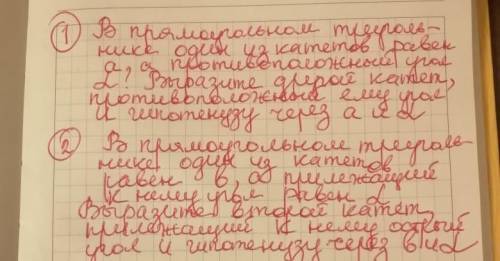 ① В прямоугольном треуголь-
нике один из катетов равен
а, а противоположный угол
α? Выразите другой катет,
противоположный ему угол,
и гипотенузу через а и α
② В прямоугольном треуголь-
нике один из катетов
равен в, а прилежащий
к нему угол равен α
Выразите второй катет,
прилежащий к нему острый
угол и гипотенузу через в и α